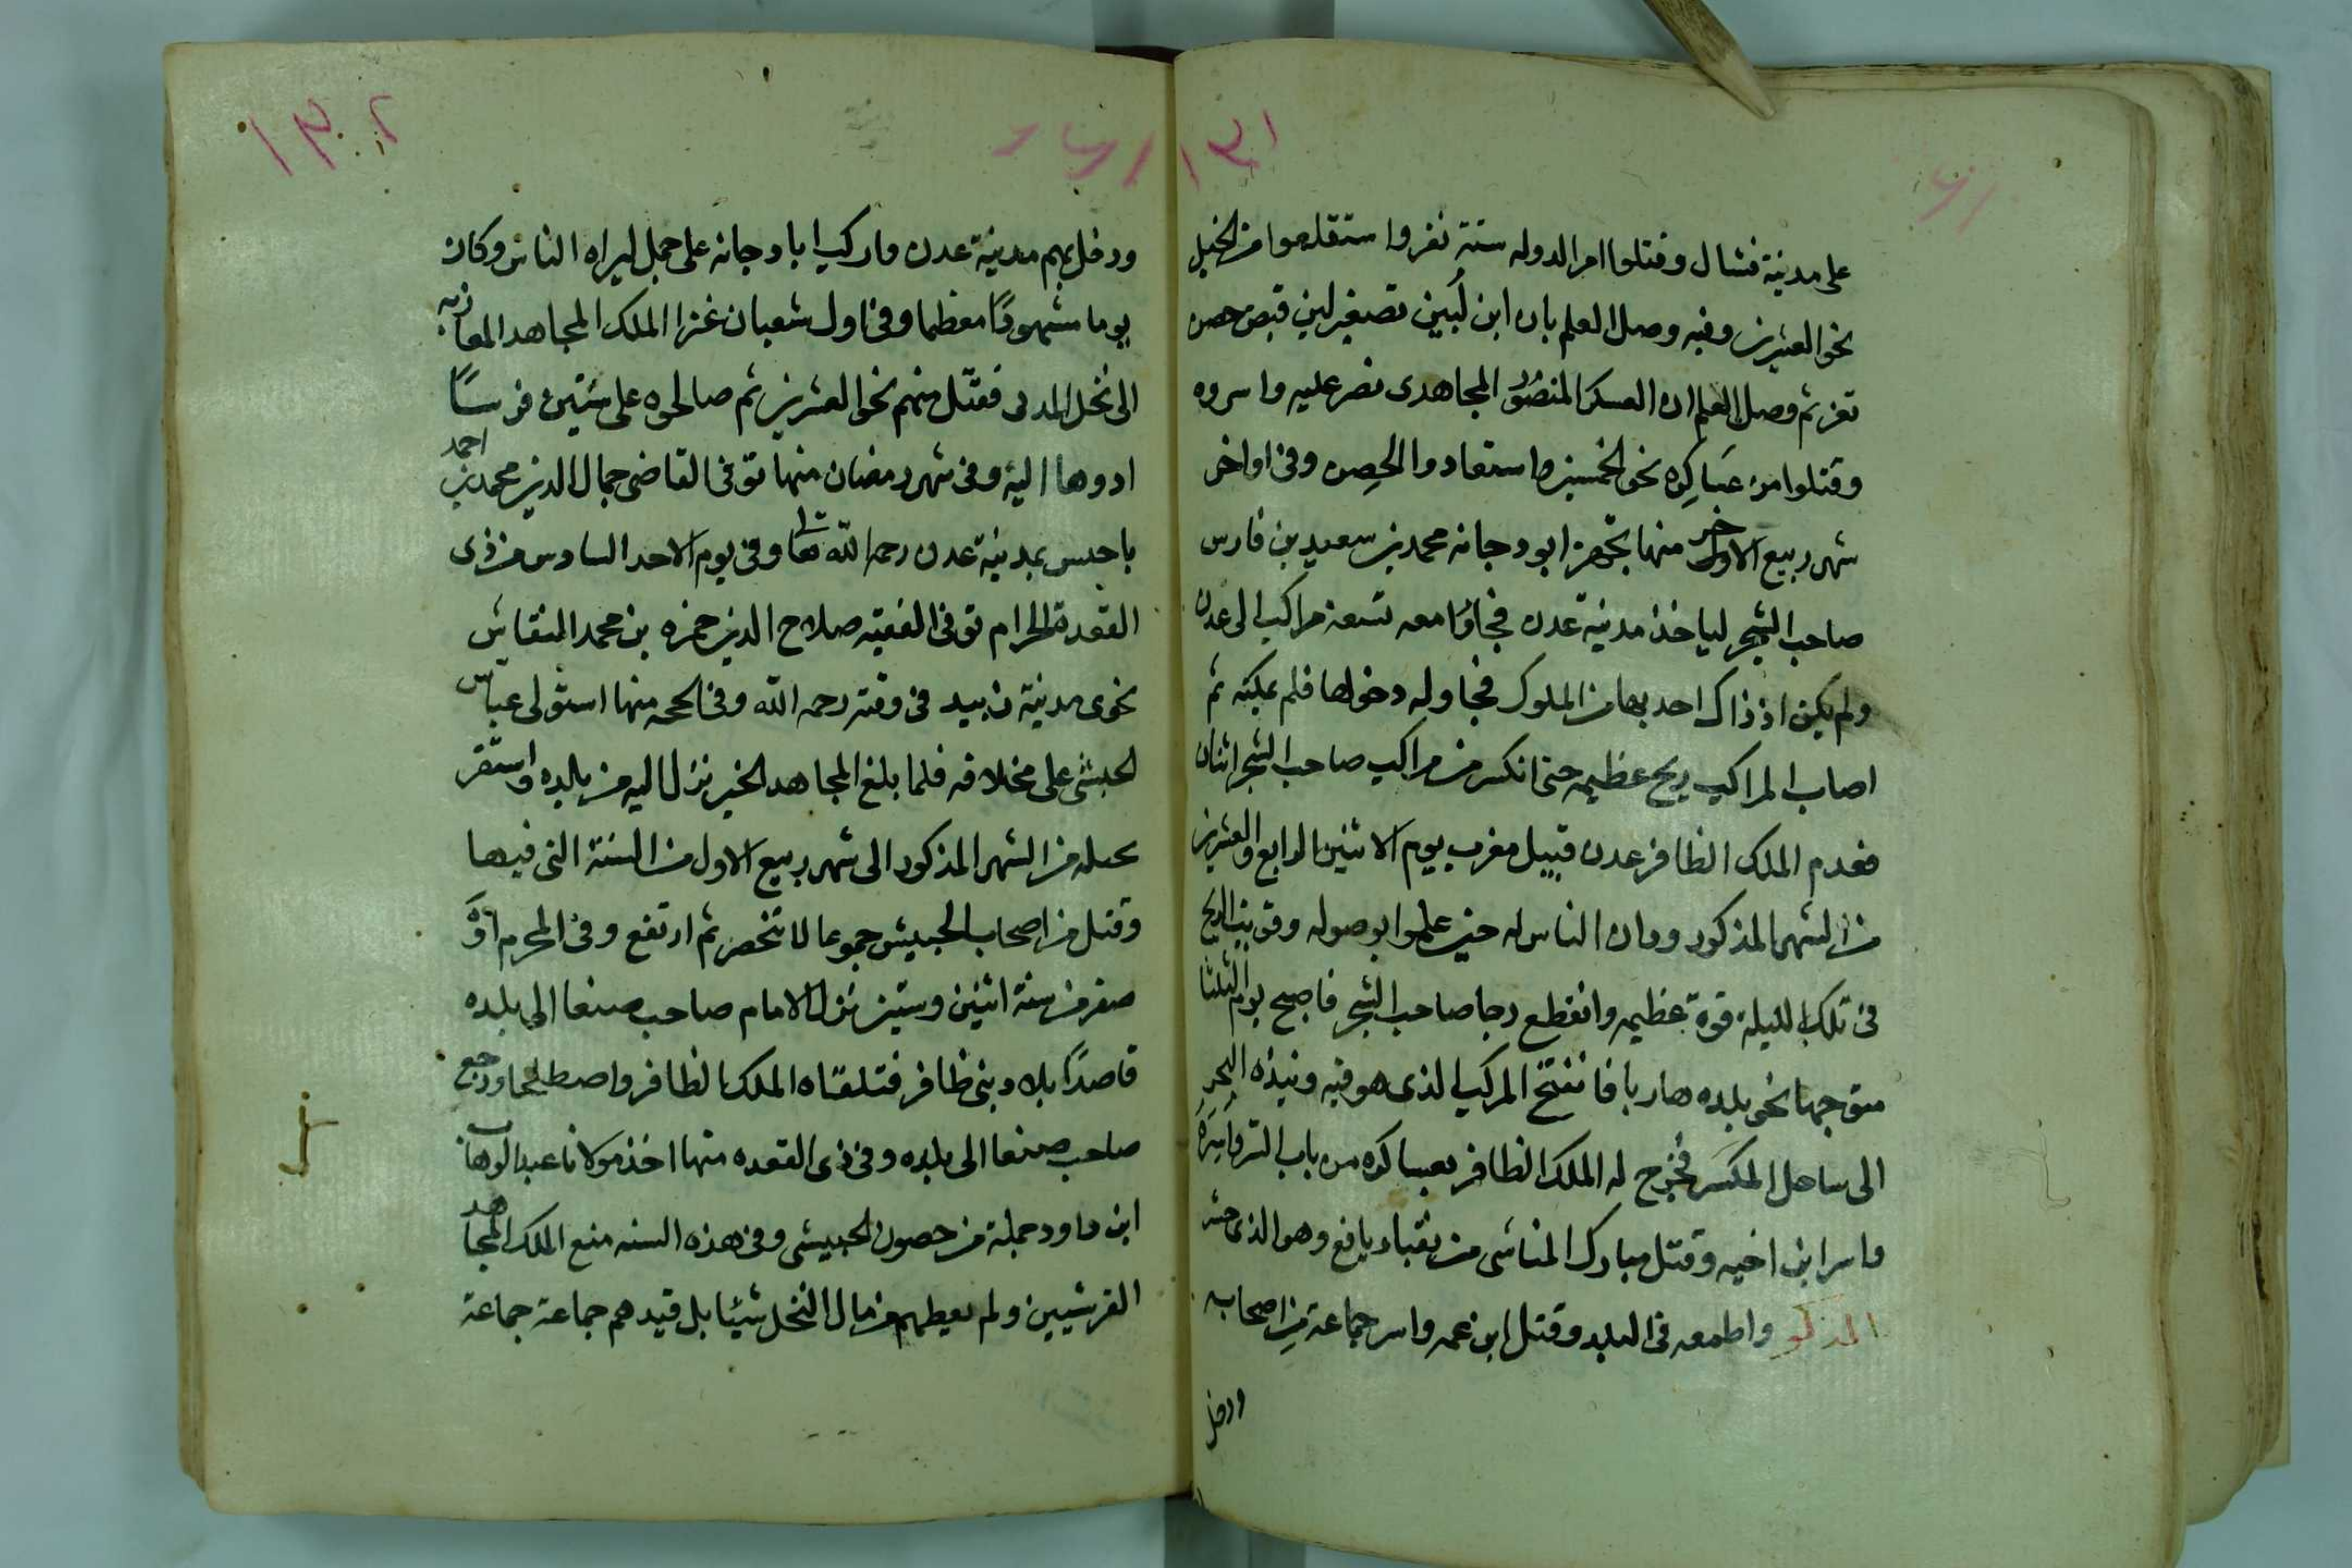 ١٣١
على مدينة فشال وقتلوا من الدوله ستة نفر واستقلعوا من الخيل
نحو العشرين وفيه وصل العلم بان ابن لُبَين تصغير لبن قبض حصن
تعز ثم وصل العلم ان العسكر المنصور المجاهدى نصر عليه واسروه
وقتلوا من عساكره نحو الخمسين واستعادوا الحصن وفى اواخر
شهر ربيع الاخر منها تجهز ابو دجانه محمد بن سعيد بن فارس
صاحب الشحر لياخذ مدينة عدن فجاؤا معه تسعة مراكب الى عدن
ولم يكن اذ ذاك احد بها من الملوك فحاوله دخولها فلم يمكنه ثم
اصاب المراكب ريح عظيمه حتى انكسر من مراكب صاحب الشحر اثنان
فقدم الملك الظافر عدن قبيل مغرب يوم الاثنين الرابع والعشرين
من الشهر المذكور ودان الناس له حين علموا بوصوله وقويت الريح
فى تلك الليلة قوة عظيمه وانقطع رجا صاحب الشحر فاصبح يوم الثلثا
متوجها نحو بلده هاربا فانفتح المركب الذى هو فيه ونبذه البحر
الى ساحل المكسر فخرج له الملك الظافر بعساكره من باب البر واسره
واسر ابن اخيه وقتل مبارك المناشى من نقباء يافع وهو الذى حشر
المذكور واطمعه فى البلد وقتل ابن عمه واسر جماعة من اصحابه
ودخل
١٣٢
ودخل بهم مدينة عدن واركب ابا دجانه على جمل ليراه الناس وكان
يوما مشهودًا معظما وفى اول شعبان غزا الملك المجاهد المعازبه
الى نخل المدنى فقتل منهم نحو العشرين ثم صالحوه على ستين فرسًا
ادوها اليه وفى شهر رمضان منها توفى القاضى جمال الدين محمد بن احمد
باحبيس بمدينة عدن رحمه الله تعا وفى يوم الاحد السادس من ذى
القعدة الحرام توفى الفقيه صلاح الدين حمزه بن محمد النقاش
نحوى مدينة زبيد فى وقته رحمه الله وفى الحجه منها استولى عباس
الحبشى على مخلافه فلما بلغ المجاهد الخبر نزل اليه من بلده واستقر
بحبله من الشهر المذكور الى شهر ربيع الاول من السنة التى فيها
وقتل من اصحاب الحبيش جموعا لا تنحصر ثم ارتفع وفى المحرم او
صفر من سنة اثنين وستين نزل الامام صاحب صنعا الى بلده
قاصدًا بلاد بنى ظافر فتلقاه الملك الظافر واصطلحا ورجع
صاحب صنعا الى بلده وفى ذى القعده منها اخذ مولانا عبد الوهاب
ابن داود جملة من حصون الحبيشى وفى هذه السنه منع الملك المجاهد
القرشيين ولم يعطهم من مال النخل شيئا بل قيدهم جماعة جماعة